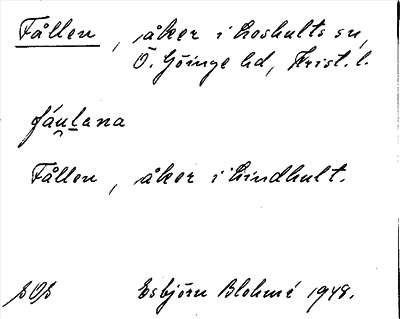 Fållen, åker i Loshults sn,
Ö. Göinge hd, Krist. l.
fáu̯lana
Fållen, åker i Lindhult.
SOS Esbjörn Blohmé 1948.